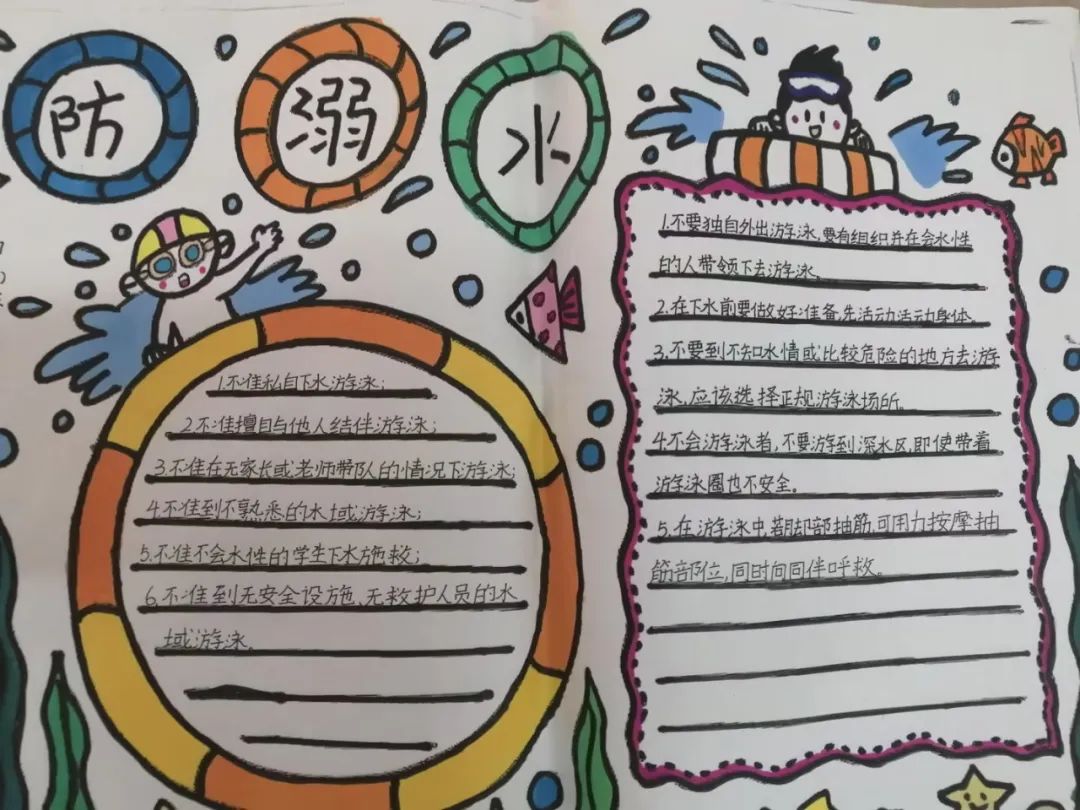 防溺水
1.不准私自下水游泳；
2.不准擅自与他人结伴游泳；
3.不准在无家长或老师带队的情况下游泳；
4.不准到不熟悉的水域游泳；
5.不准不会水性的学生下水施救；
6.不准到无安全设施、无救护人员的水
域游泳。
1.不要独自外出游泳,要有组织并在会水性
的人带领下去游泳。
2.在下水前要做好准备,先活动活动身体。
3.不要到不知水情或比较危险的地方去游
泳,应该选择正规游泳场所。
4.不会游泳者,不要游到深水区,即使带着
游泳圈也不安全。
5.在游泳中,若脚部抽筋,可用力按摩抽
筋部位,同时向同伴呼救。